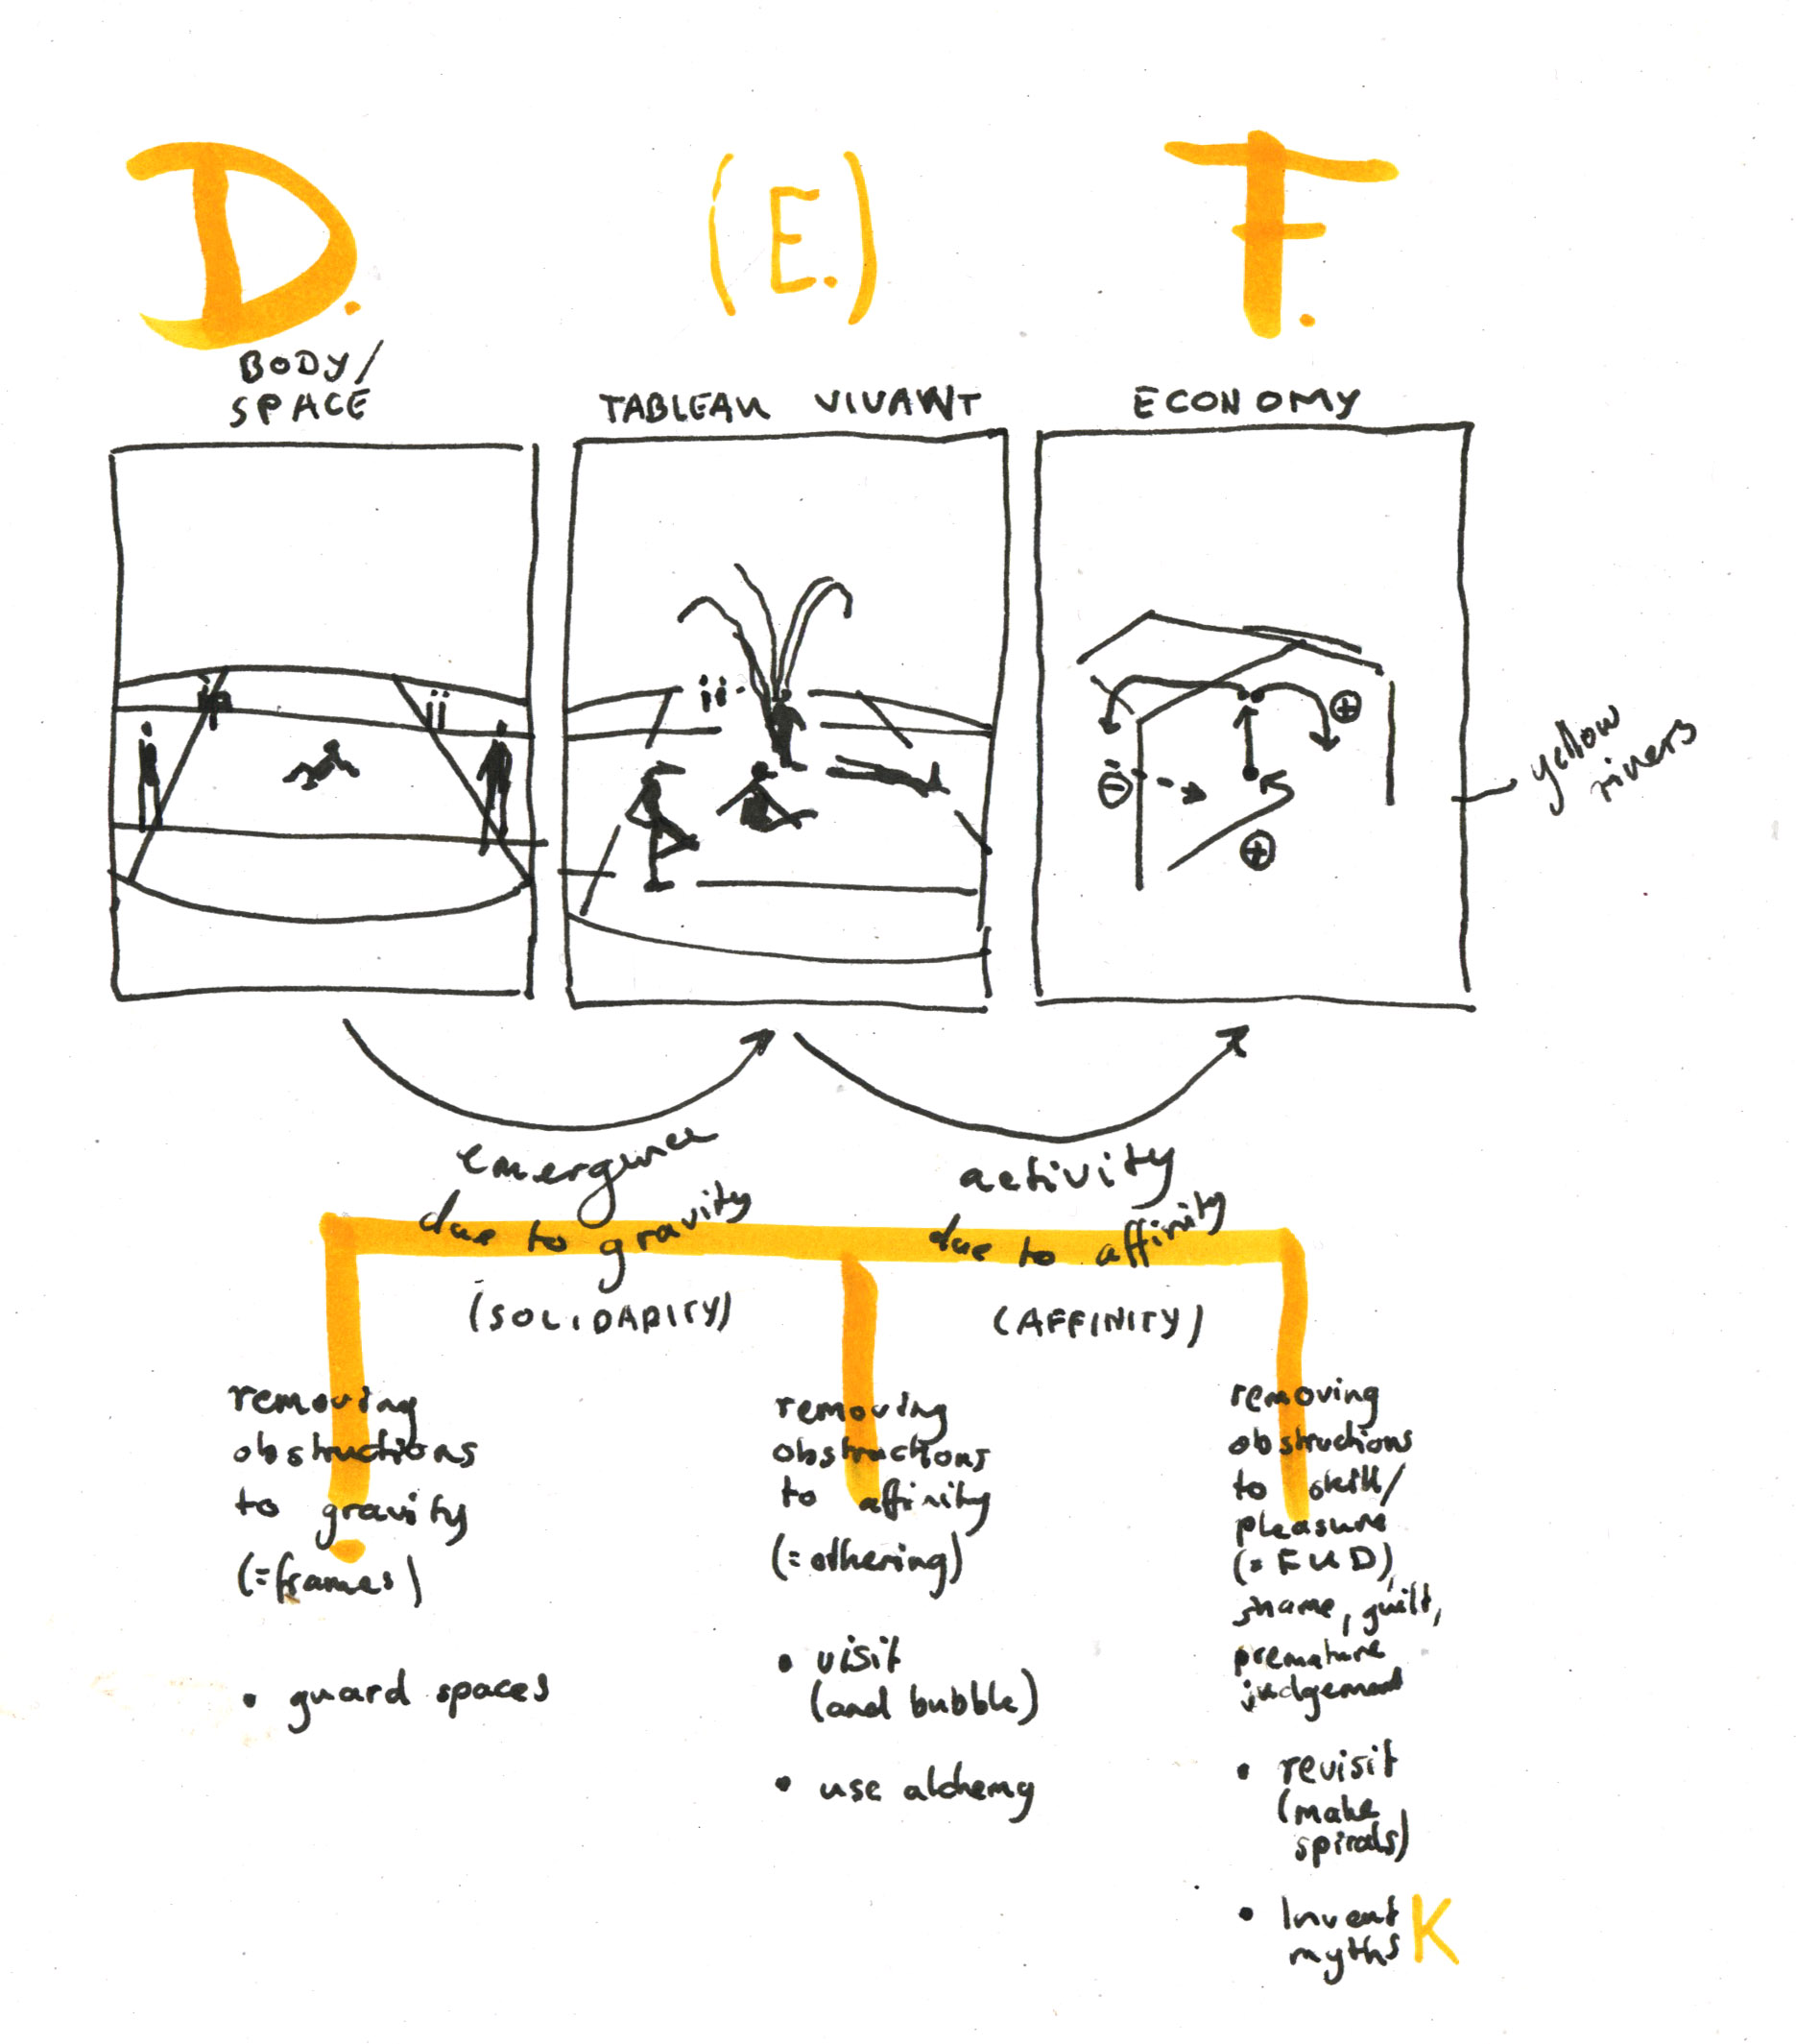 D.
(E.)
F.
BODY/
SPACE
TABLEAU VIVANT
ECONOMY
yellow
rivers
emergence
due to gravity
(SOLIDARITY)
activity
due to affinity
(AFFINITY)
removing
obstructions
to gravity
(=frames)
• guard spaces
removing
obstructions
to affinity
(=othering)
• visit
(and bubble)
• use alchemy
removing
obstructions
to skill/
pleasure
(=FUD),
shame, guilt,
premature
judgement
• revisit
(make
spirals)
• Invent
myths
K